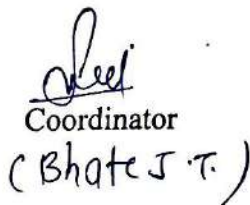 Coordinator
(Bhate J.T.)